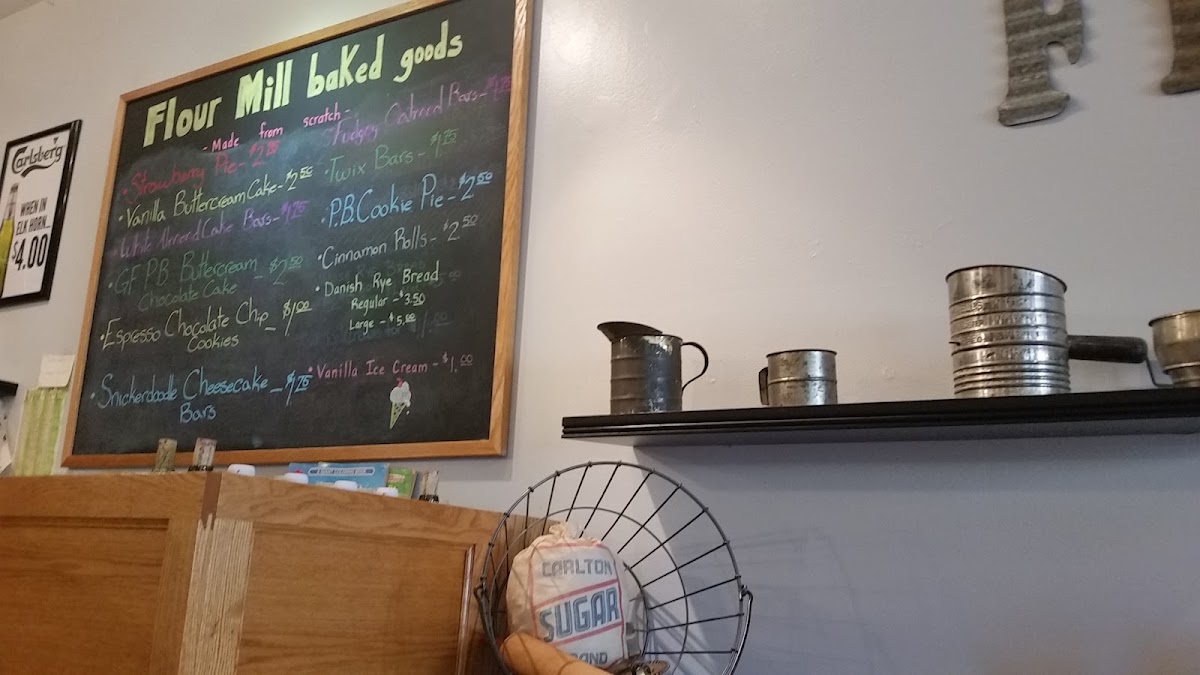 Carlsberg
WHEN IN
ELK HORN...
$4.00
Flour Mill baked goods
- Made from scratch -
• Strawberry Pie - $2.75
• Vanilla Buttercream Cake - $2.50
• White Almond Cake Bars - $1.75
• GF P.B. Buttercream
Chocolate Cake - $2.50
• Espresso Chocolate Chip - $1.00
Cookies
• Snickerdoodle Cheesecake - $1.75
Bars
• Fudgey Oatmeal Bars - $1.75
• Twix Bars - $1.75
• P.B. Cookie Pie - $2.50
• Cinnamon Rolls - $2.50
• Danish Rye Bread
Regular - $3.50
Large - $5.00
• Vanilla Ice Cream - $1.00
CARLTON
SUGAR